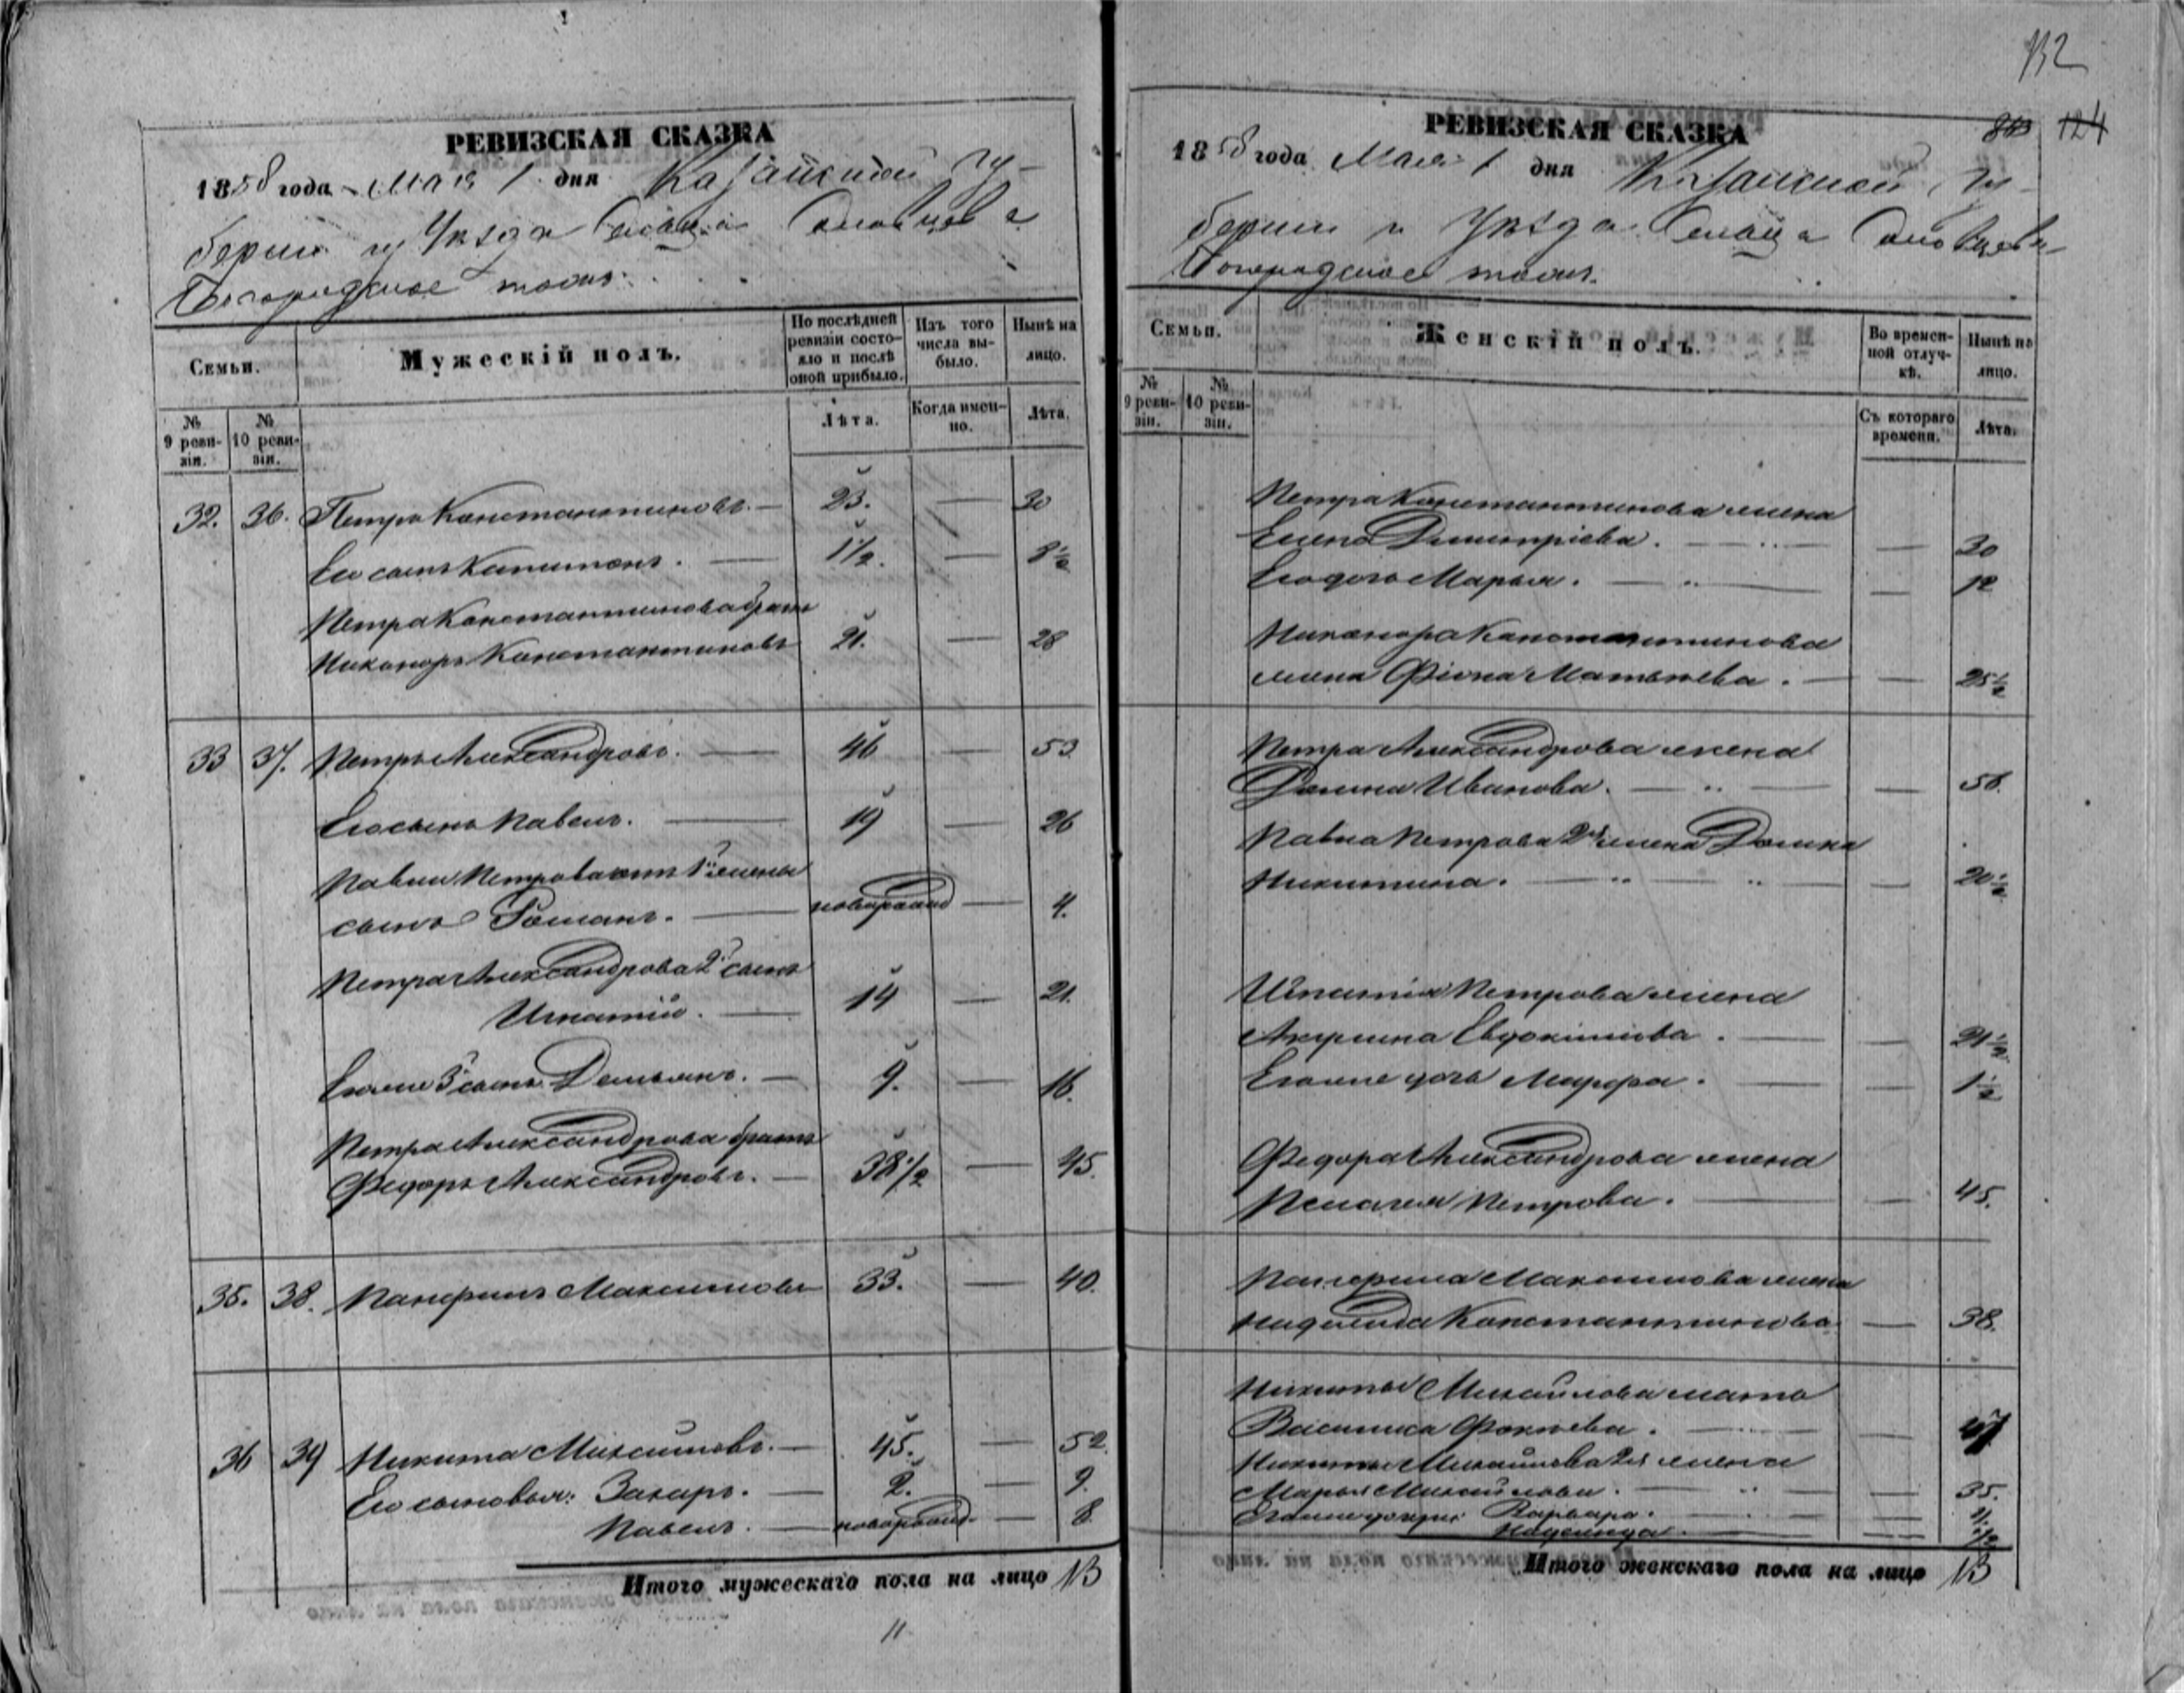 132
РЕВИЗСКАЯ СКАЗКА
1858 года Мая 1 дня Казанской гу-
берніи и Уѣзда Сельца
Богородское тожъ.
Семьи.
Мужескій полъ.
По послѣдней ревизіи состо-яло и послѣ оной прибыло.
Изъ того числа вы-было.
Нынѣ на лицо.
№ 9 реви-зіи.
№ 10 реви-зіи.
Лѣта.
Когда имен-но.
Лѣта.
32. 36. Петръ Константиновъ. — 23. — 30
Его сынъ Капитонъ. — 1½. — 8½
Петра Константинова братъ
Никаноръ Константиновъ 21. — 28
33 37. Петръ Александровъ. — 46 — 53
Его сынъ Павелъ. — 19 — 26
Павла Петрова отъ 1й жены
сынъ Романъ. — новорожд — 4.
Петра Александрова 2й сынъ
Игнатій. — 14 — 21.
Его же 3й сынъ Демьянъ. — 9. — 16.
Петра Александрова братъ
Федоръ Александровъ. — 38½ — 45.
35. 38. Панфилъ Максимовъ 33. — 40.
36 39 Никита — 45. — 52.
Его сыновья: Захаръ. — 2. — 9.
Павелъ. — новорожд. — 8.
Итого мужескаго пола на лицо 13
11
РЕВИЗСКАЯ СКАЗКА
124
1858 года Мая 1 дня Казанской гу-
берніи и Уѣзда Сельца
Богородское тожъ.
Семьи.
Женскій полъ.
Во времен-ной отлуч-кѣ.
Нынѣ на лицо.
№ 9 реви-зіи.
№ 10 реви-зіи.
Съ котораго времени.
Лѣта.
Петра Константинова жена
Елена Дмитріева. — — 30
Его дочь Марья. — — 12
Никанора Константинова
жена Фіона Матвѣева. — — 25½
Петра Александрова жена
Домна Иванова. — — 58.
Павла Петрова 2я жена Домна
Никитина. — — 20½
Игнатія Петрова жена
Акулина Евдокимова. — — 21½
Его же дочь Марфа. — — 1½
Федора Александрова жена
Пелагея Петрова. — — 45.
Панфила Максимова жена
Надежда Константинова — 38.
Никиты Михайлова мать
Василиса Фокѣева. — —
Никиты Михайлова 2я жена
Марья Михайлова. — — 35.
Его же дочери: Варвара. — —
Надежда. — — ½
Итого женскаго пола на лицо 13